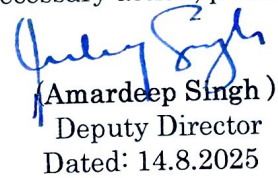 (Amardeep Singh)
Deputy Director
Dated: 14.8.2025